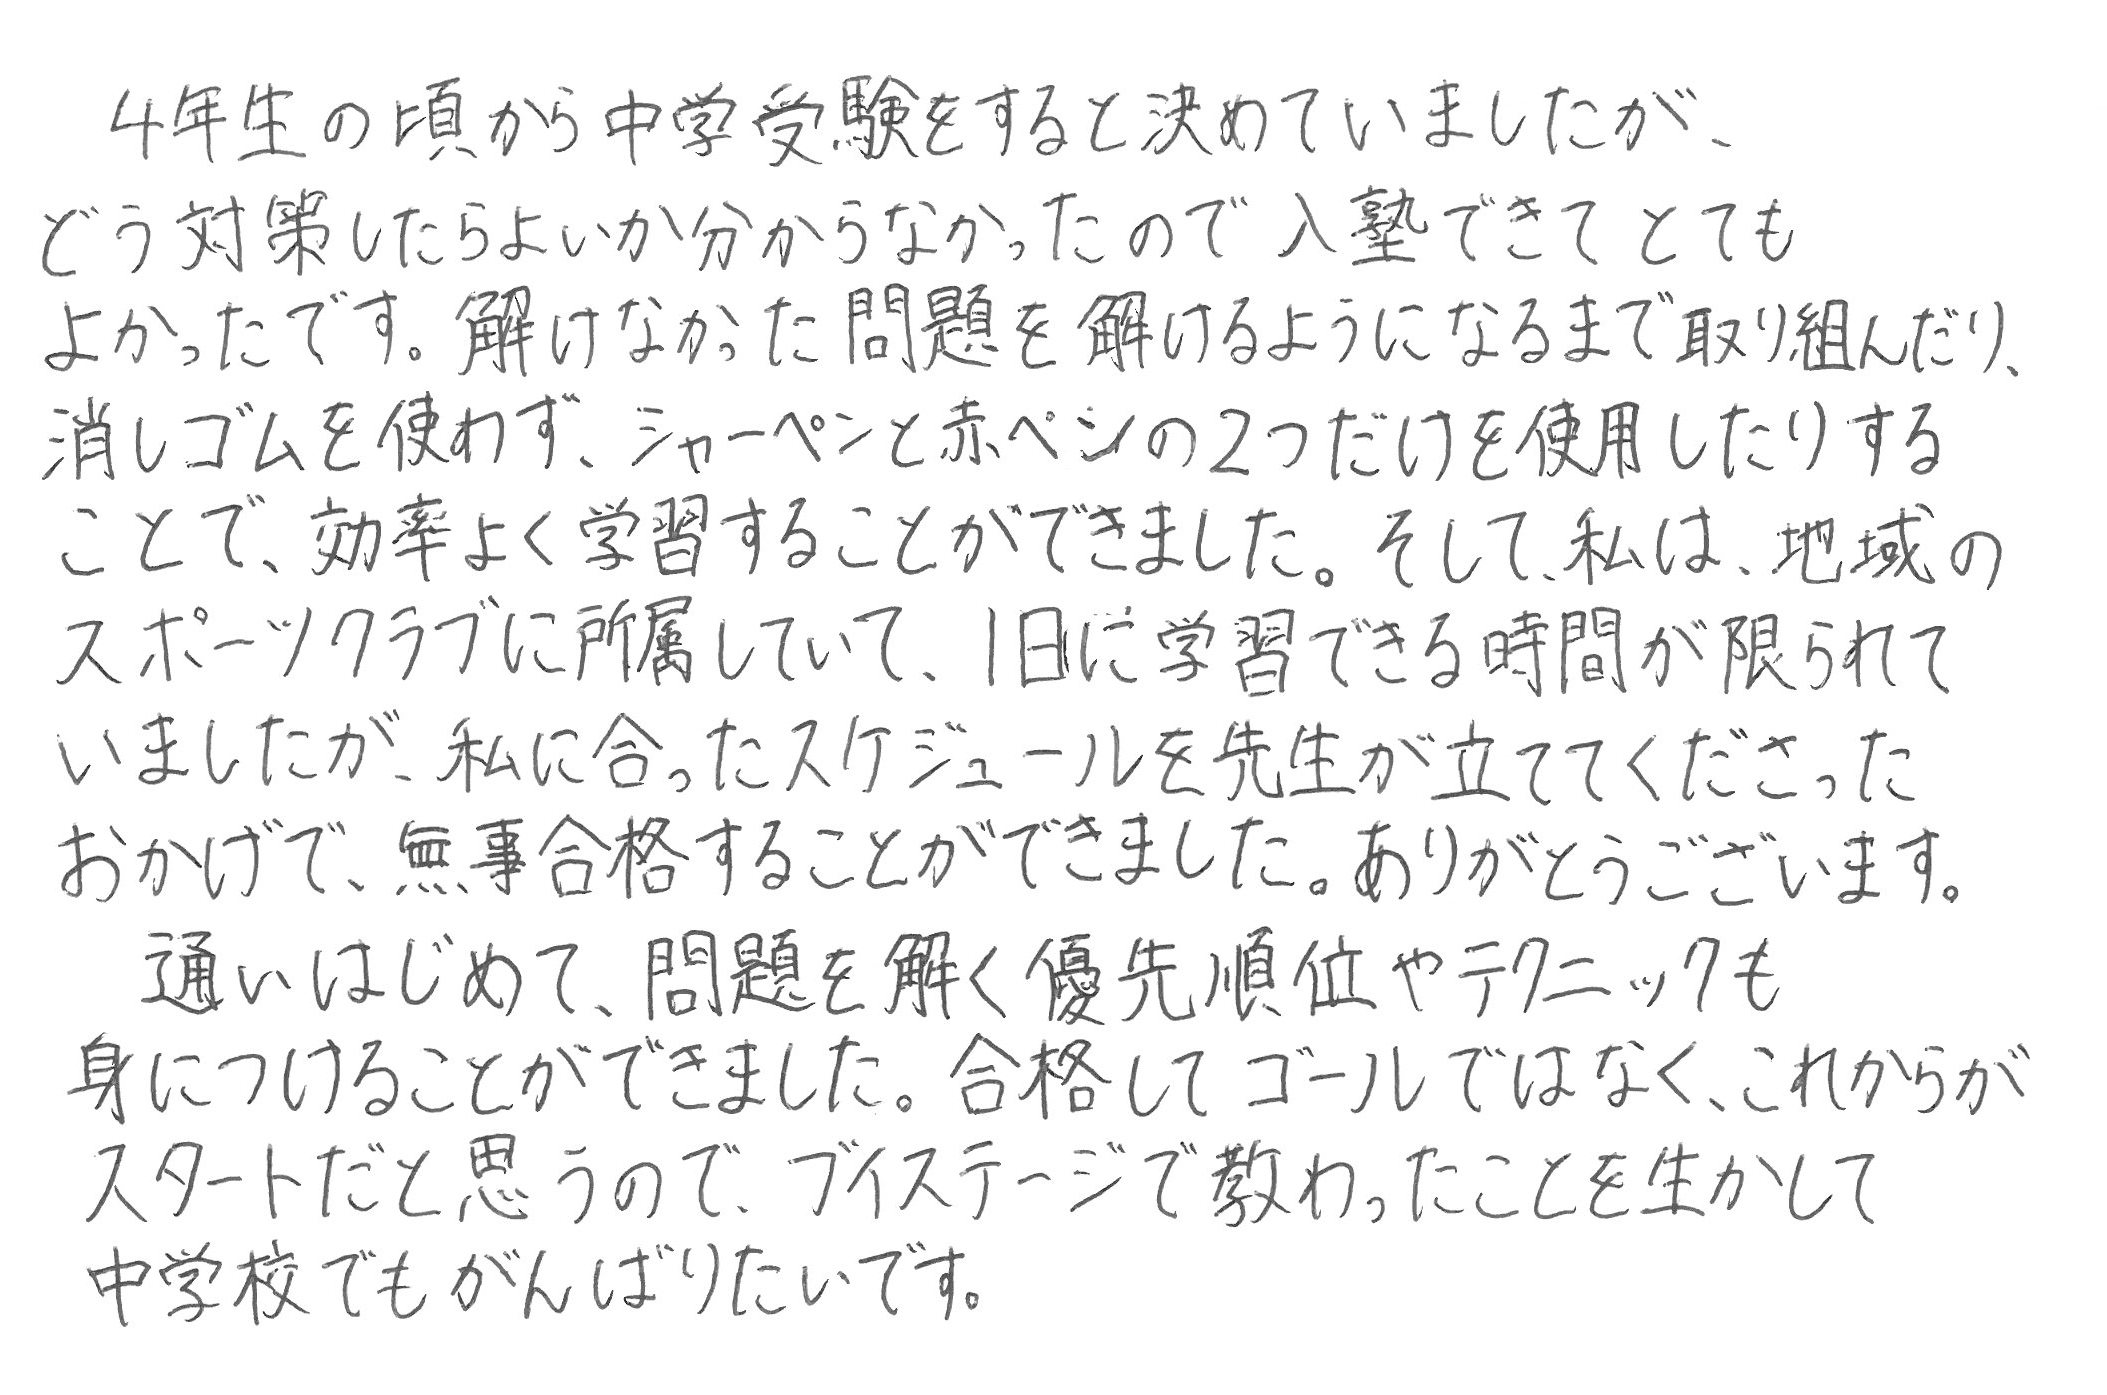 4年生の頃から中学受験をすると決めていましたが、
どう対策したらよいか分からなかったので入塾できてとても
よかったです。解けなかった問題を解けるようになるまで取り組んだり、
消しゴムを使わず、シャーペンと赤ペンの2つだけを使用したりする
ことで、効率よく学習することができました。そして、私は、地域の
スポーツクラブに所属していて、1日に学習できる時間が限られて
いましたが、私に合ったスケジュールを先生が立ててくださった
おかげで、無事合格することができました。ありがとうございます。
通いはじめて、問題を解く優先順位やテクニックも
身につけることができました。合格してゴールではなく、これからが
スタートだと思うので、ブイステージで教わったことを生かして
中学校でもがんばりたいです。